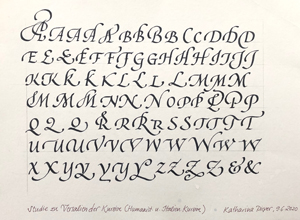 A A A A A B B B B C C D D D
E E E E F F T G G H H H I I J J
K K K K K L L L L M M M
M M M N N N O P P P P P
Q Q Q R R R R S S T T T T
U U U U V V V V W W W W W
X X X Y Y Y Y Z Z Z Z & &
Studie zu Versalien der Kursive (Humanist. u. Italien. Kursive) Katharina